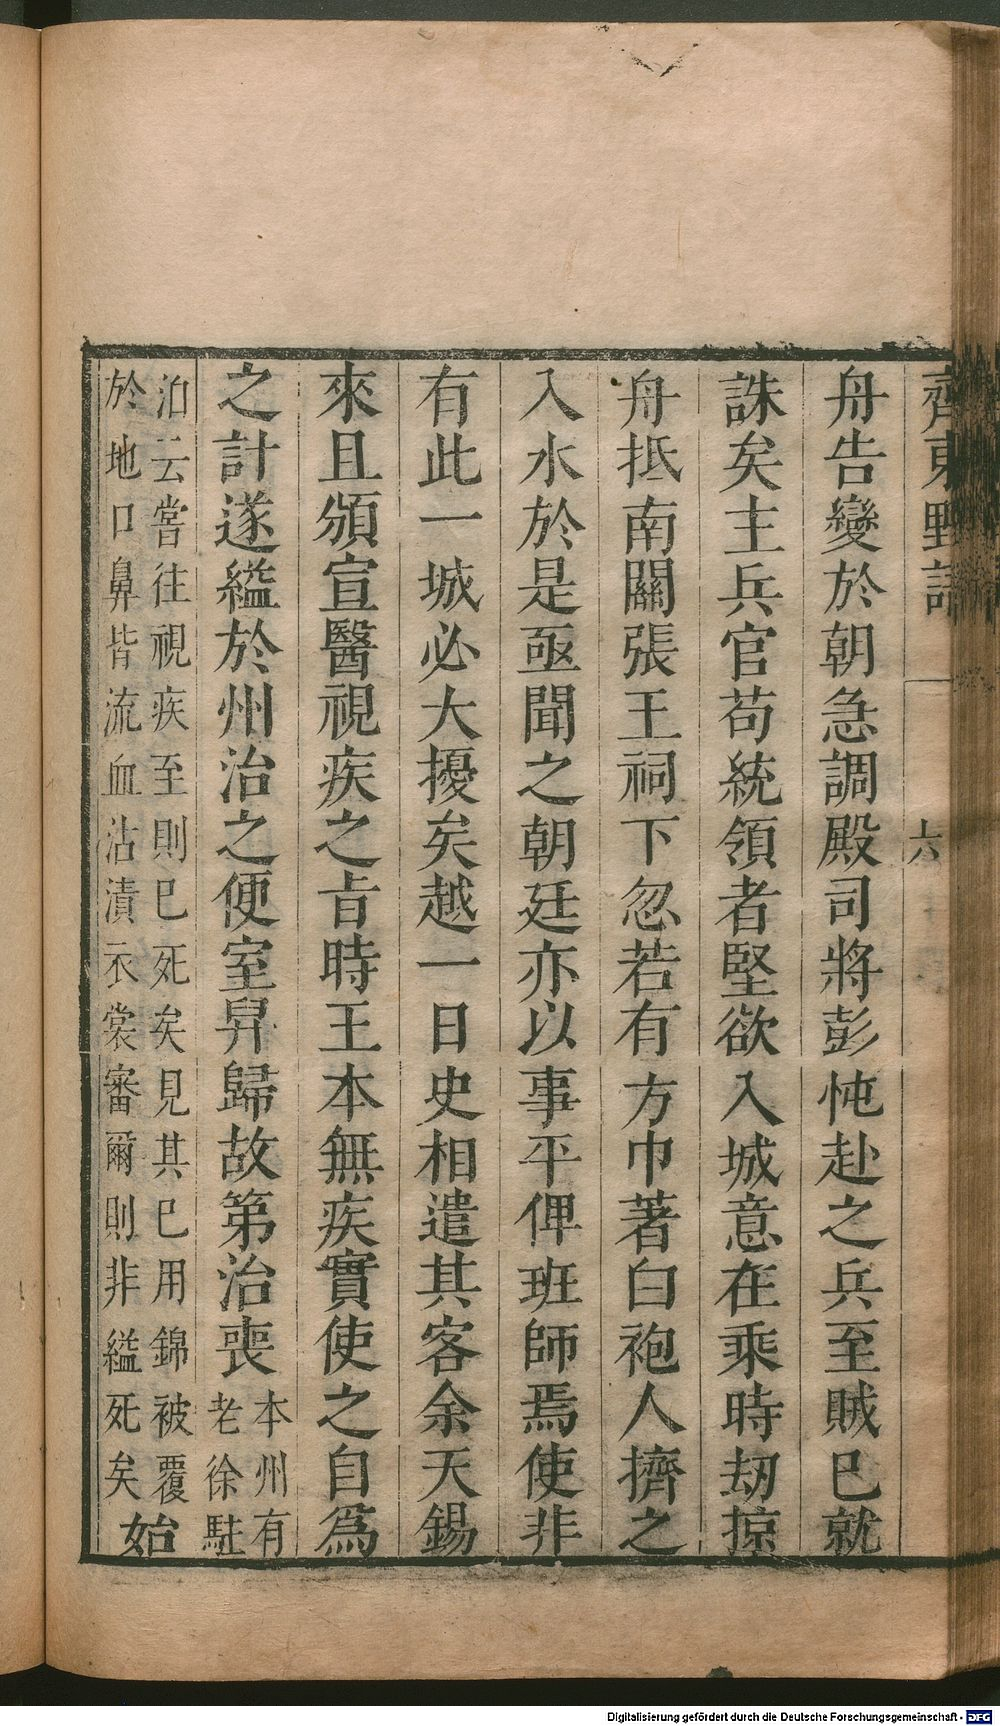 齊東野語 六
舟告變於朝急調殿司將彭忳赴之兵至賊巳就
誅矣主兵官苟統領者堅欲入城意在乘時刧掠
舟抵南關張王祠下忽若有方巾著白袍人擠之
入水於是亟聞之朝廷亦以事平俾班師焉使非
有此一城必大擾矣越一日史相遣其客余天錫
來且頒宣醫視疾之㫖時王本無疾實使之自爲
之計遂縊於州治之便室舁歸故第治喪本州有
老徐駐
泊云嘗往視疾至則巳死矣見其巳用錦被覆
於地口鼻皆流血沾漬衣裳審爾則非縊死矣始
Digitalisierung gefördert durch die Deutsche Forschungsgemeinschaft - DFG